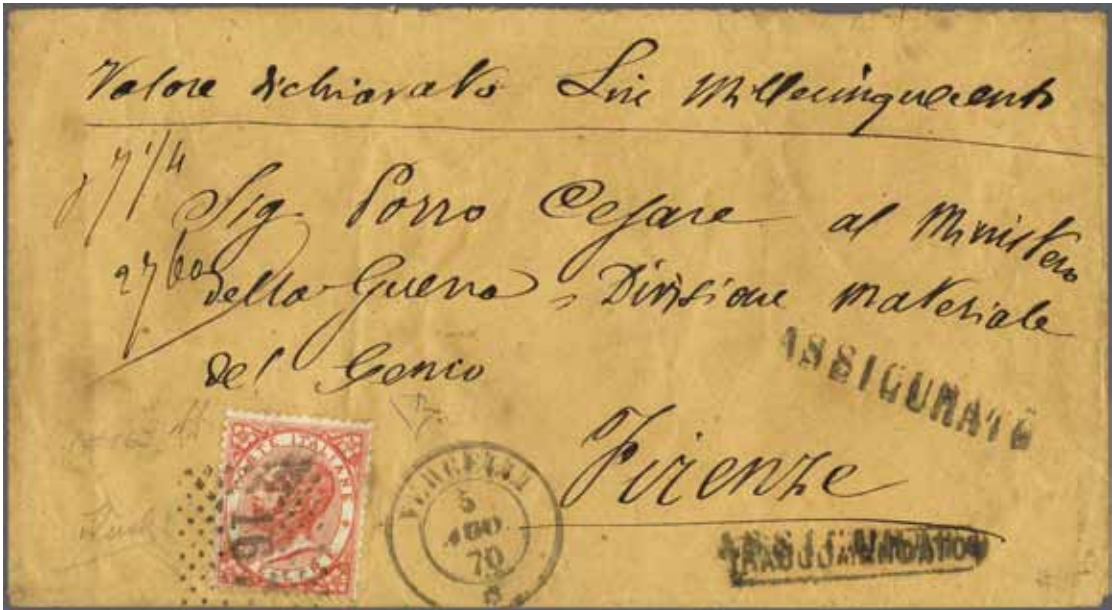 Valore dichiarato Lire Millecinquecento
7 1/4
Sig. Porro Cesare al Ministero
27/60
della Guerra, Divisione materiale
del Genio
ASSICURATO
Firenze
POSTE ITALIANE
216
VERCELLI
5
AGO
70
ASSICURATO